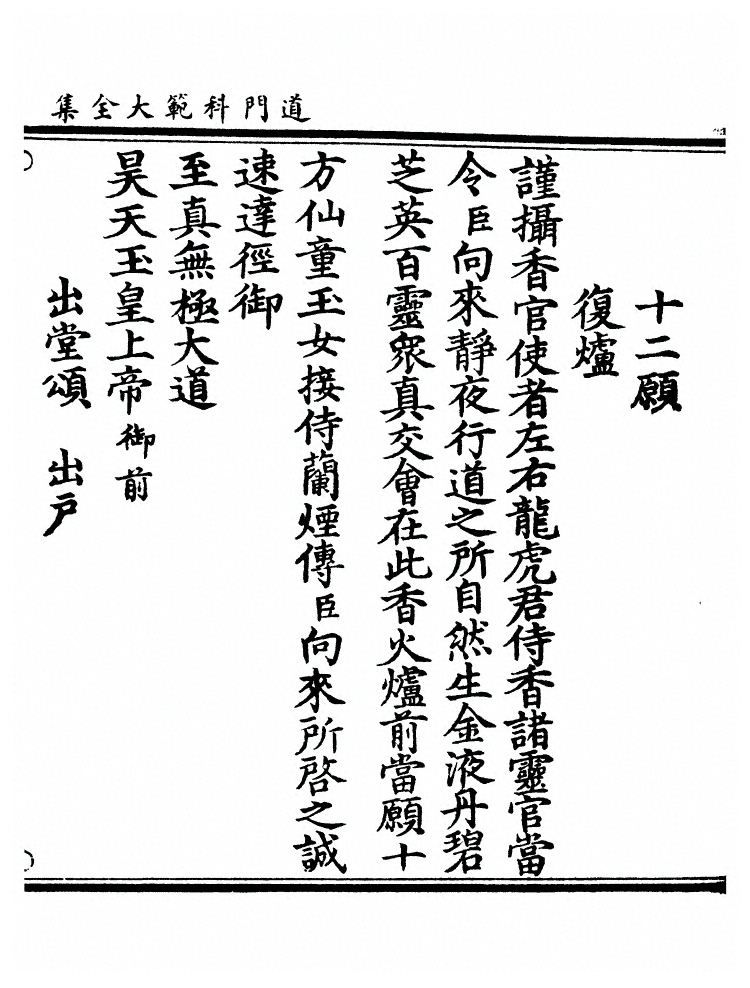 道門科範大全集
十二願
復爐
謹攝香官使者左右龍虎君侍香諸靈官當
令臣向來靜夜行道之所自然生金液丹碧
芝英百靈衆真交會在此香火爐前當願十
方仙童玉女接侍蘭煙傳臣向來所啓之誠
速達徑御
至真無極大道
昊天玉皇上帝御前
出堂頌 出戶